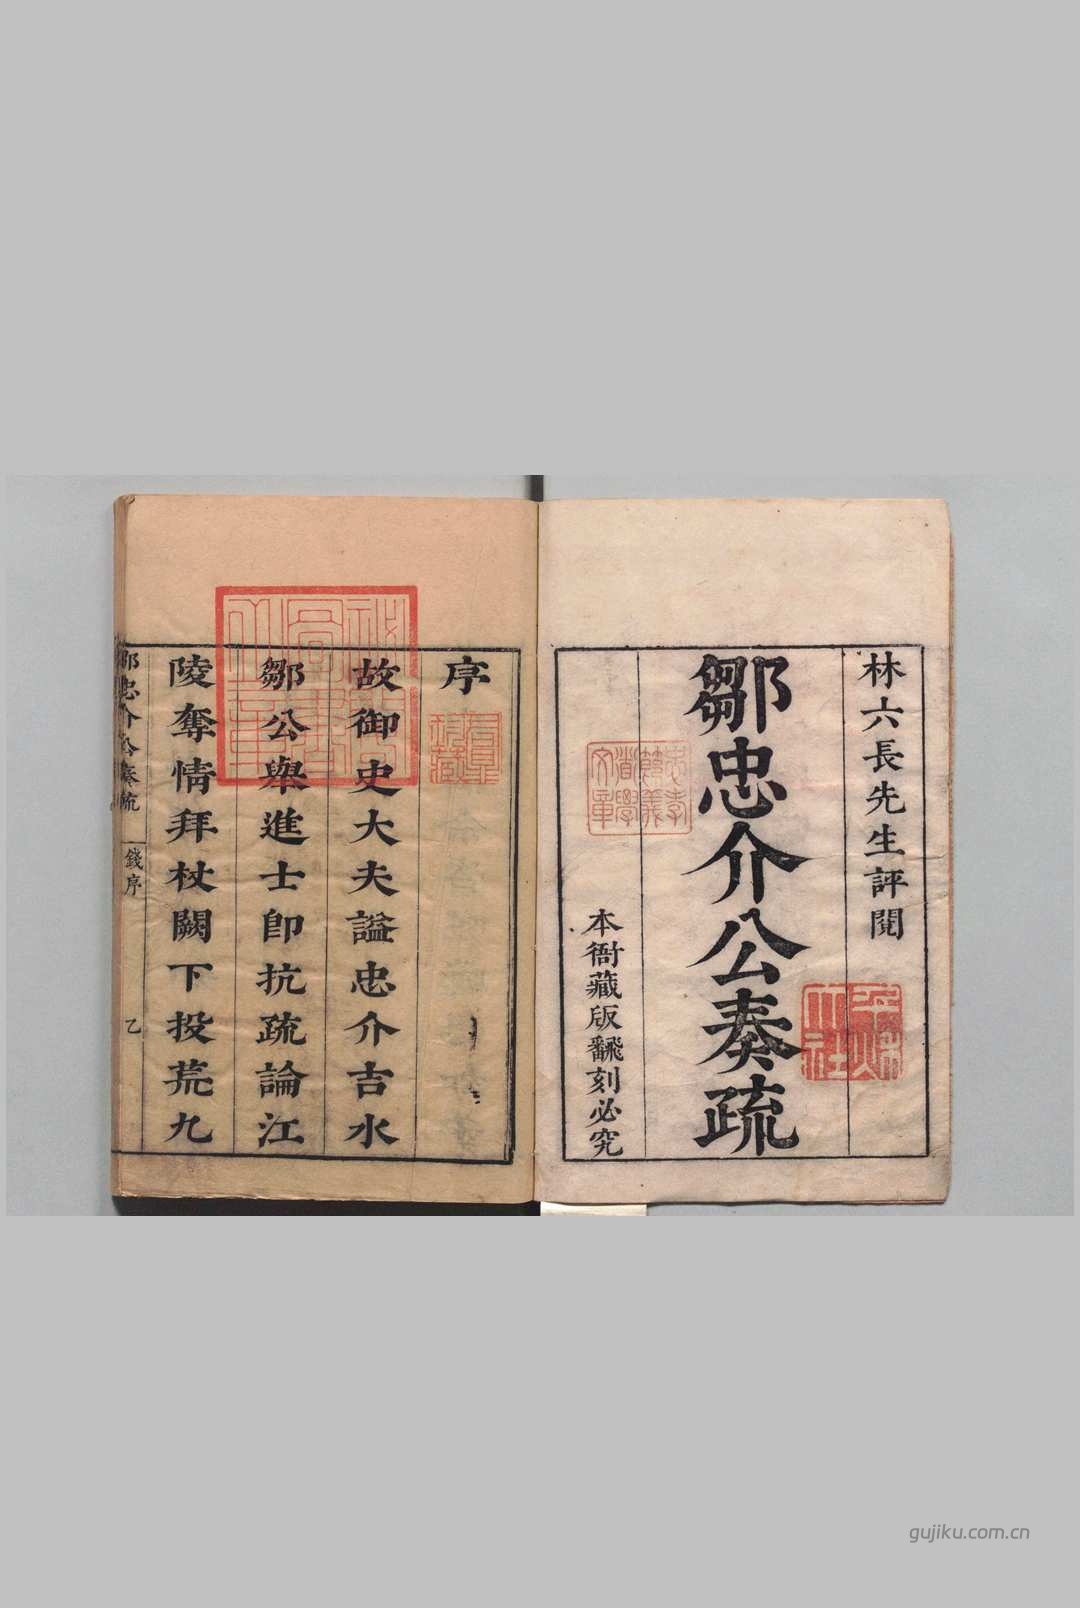 林六長先生評閱
鄒忠介公奏疏
本衙藏版飜刻必究
忠孝節義道學文章
序
故御史大夫謚忠介吉水
鄒公舉進士卽抗疏論江
陵奪情拜杖闕下投荒九
鄒忠介公奏疏
錢序
乙
gujiku.com.cn